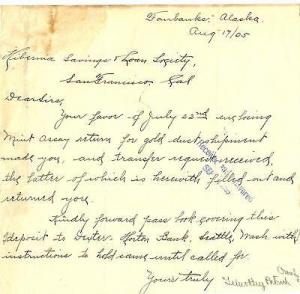 Fairbanks, Alaska.
Aug 17/05
Hibernia Savings & Loan Society,
San Francisco Cal
Dear Sirs,
Your favor of July 22nd enclosing
Mint assay return for gold dust shipment
made you, and transfer request received,
the latter of which is herewith filled out and
returned you.
Kindly forward pass book covering this
deposit to Dexter Horton Bank, Seattle, Wash. with
instructions to hold same until called for.
Yours truly
Timothy